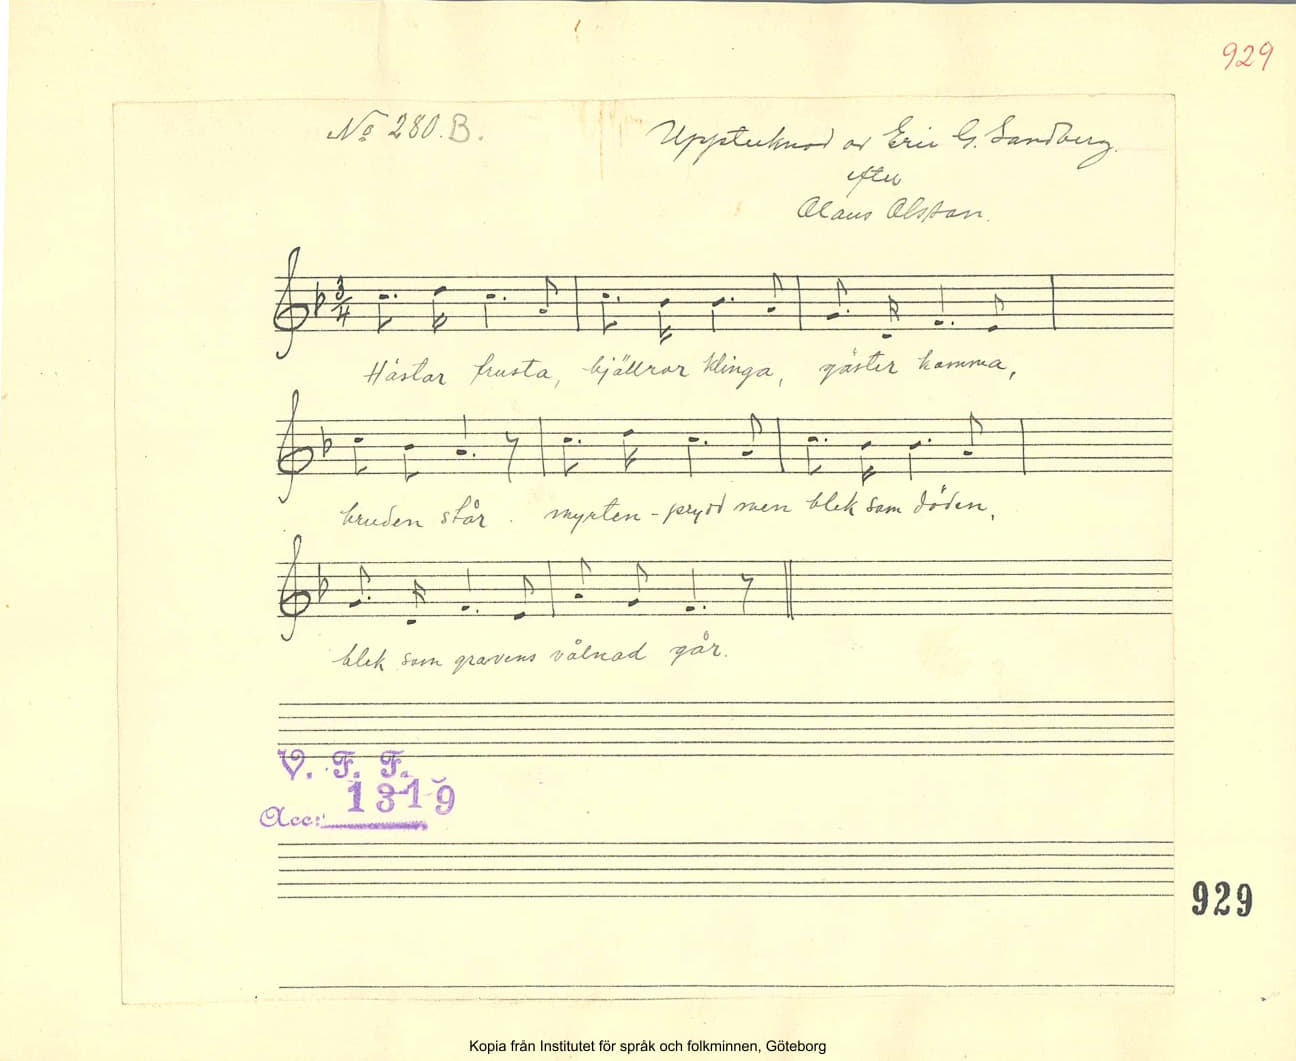 929
No 280. B.
Upptecknad av Eric G. Sandberg.
efter
Olaus Olsson.
3/4
Hästar frusta, bjällror klinga, gäster komma,
bruden står. myrten-prydd men blek som döden,
blek som gravens vålnad går.
V. F. F.
1319
Acc:
929
Kopia från Institutet för språk och folkminnen, Göteborg